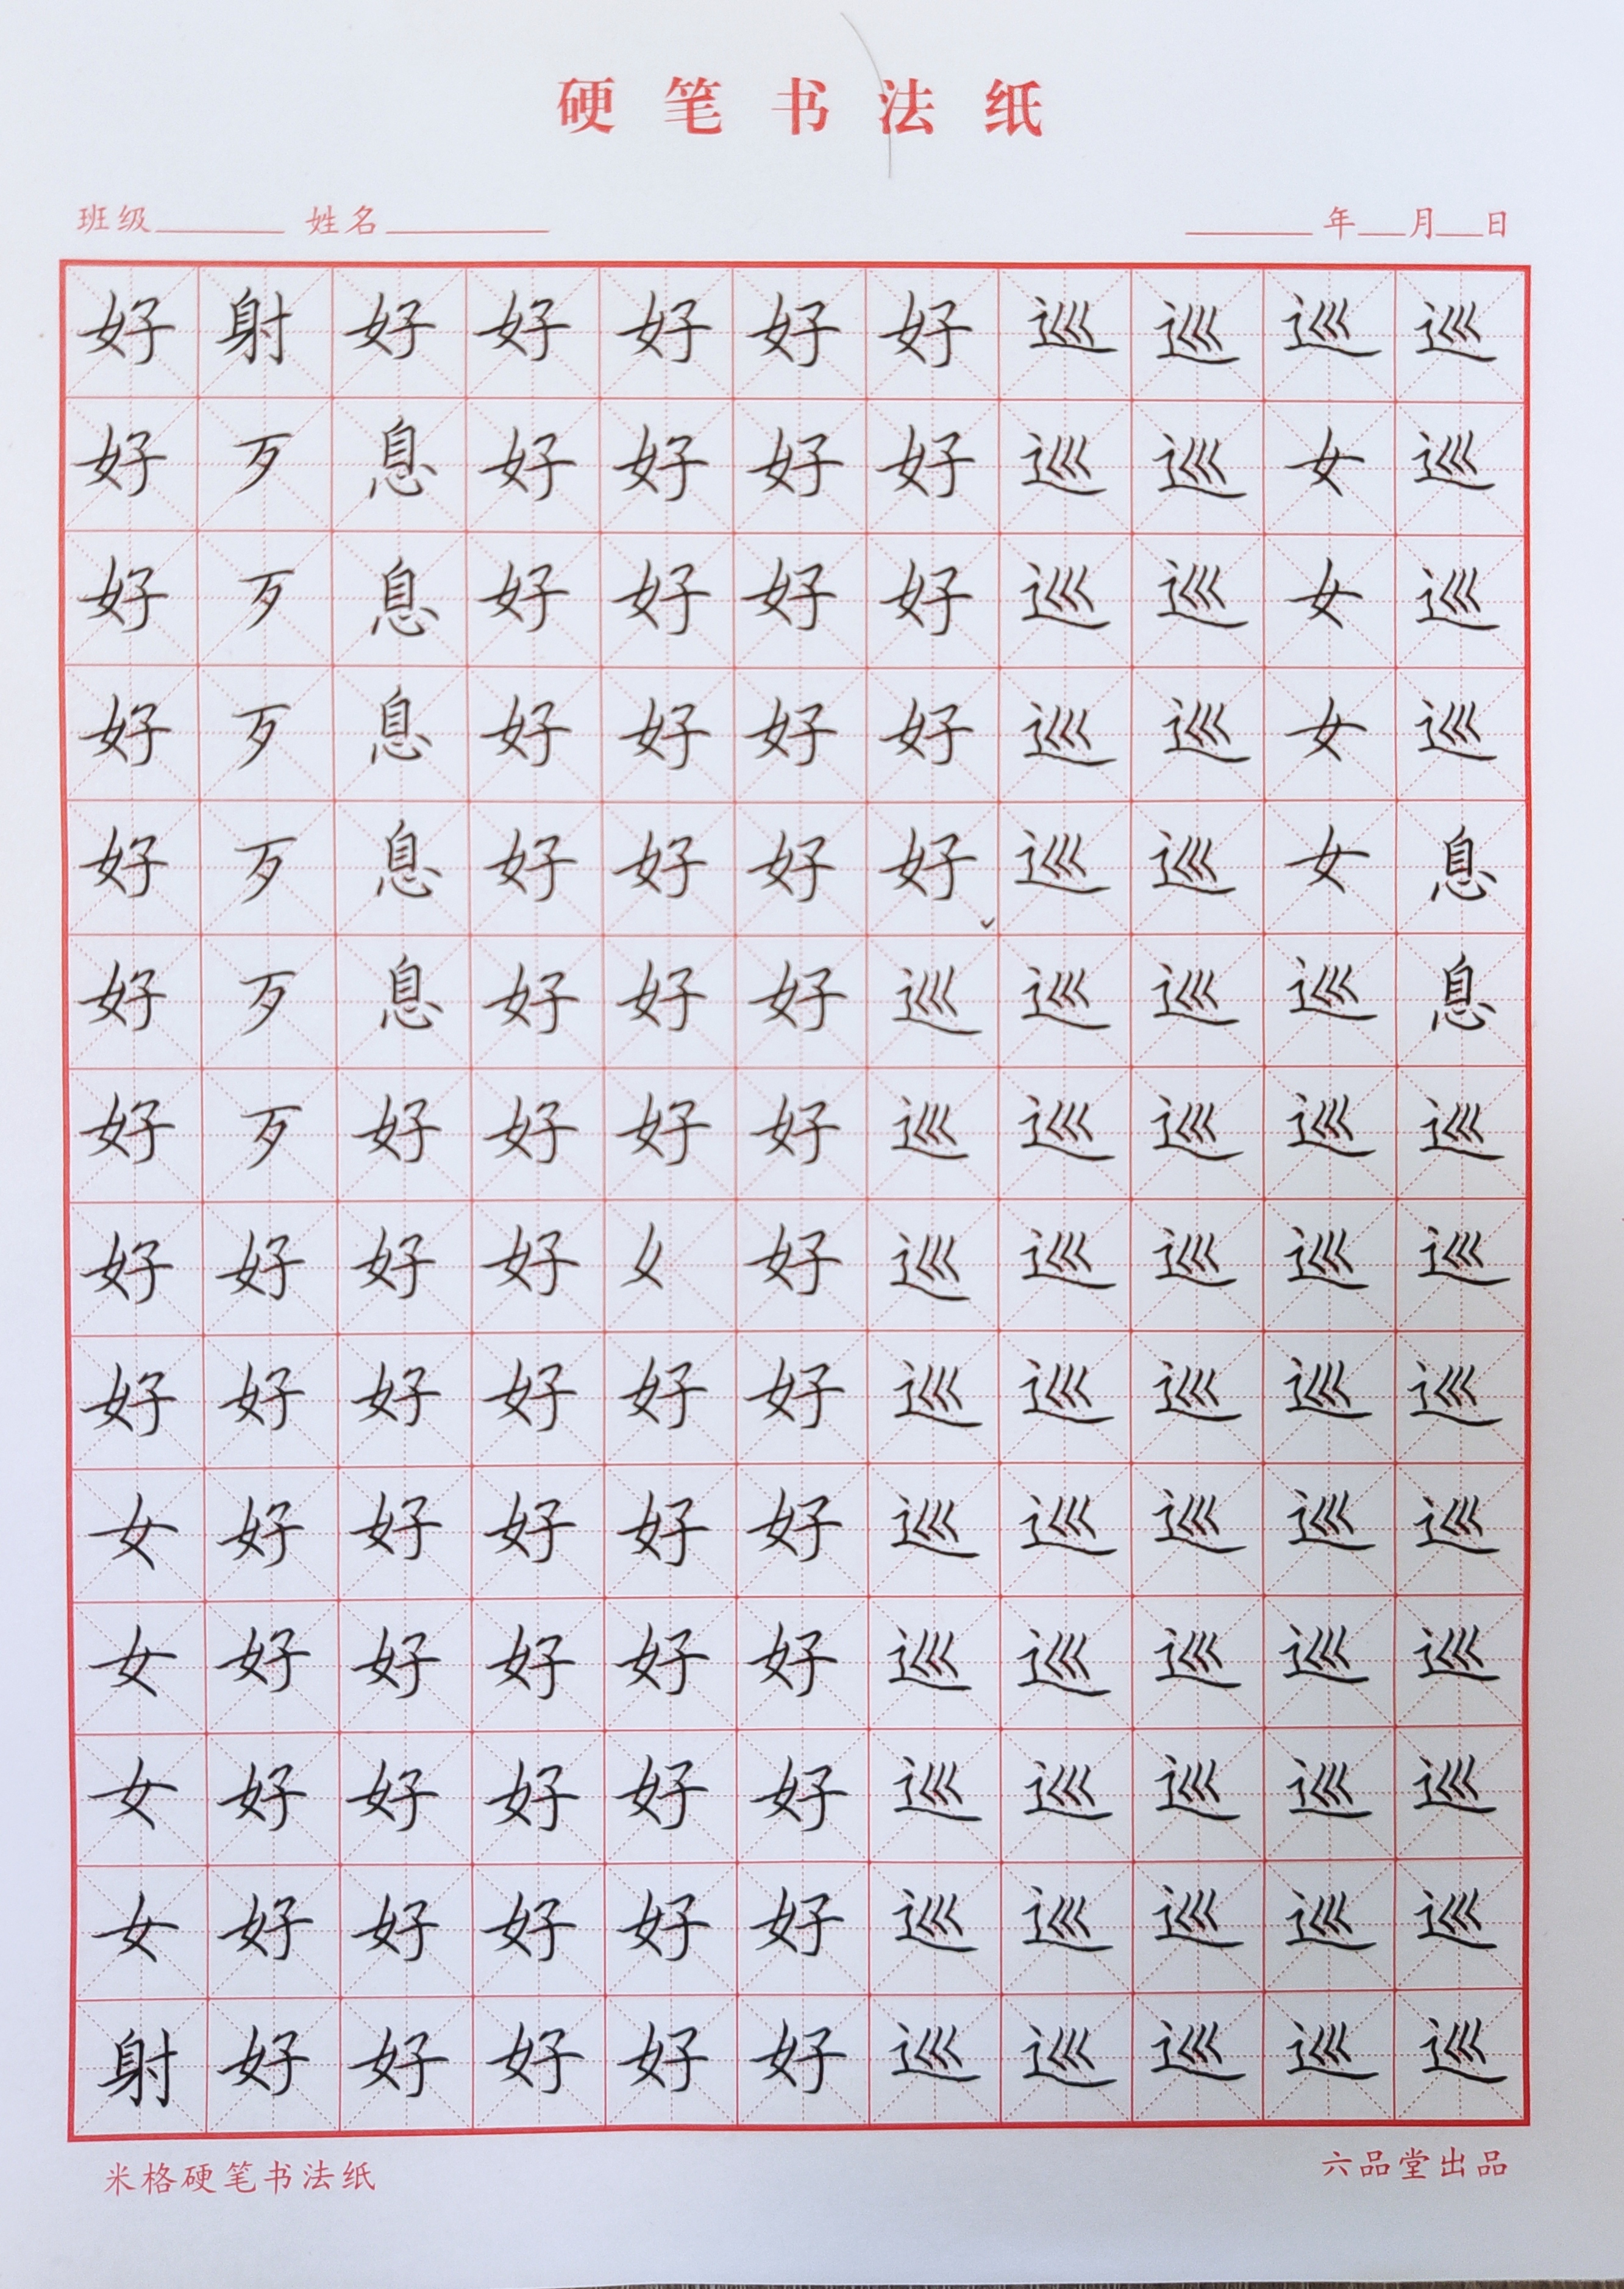 硬笔书法纸
班级 姓名 年 月 日
好 射 好 好 好 好 好 巡 巡 巡 巡
好 歹 息 好 好 好 好 巡 巡 女 巡
好 歹 息 好 好 好 好 巡 巡 女 巡
好 歹 息 好 好 好 好 巡 巡 女 巡
好 歹 息 好 好 好 好 巡 巡 女 息
好 歹 息 好 好 好 巡 巡 巡 巡 息
好 歹 好 好 好 好 巡 巡 巡 巡 巡
好 好 好 好 好 巡 巡 巡 巡 巡
好 好 好 好 好 好 巡 巡 巡 巡 巡
女 好 好 好 好 好 巡 巡 巡 巡 巡
女 好 好 好 好 好 巡 巡 巡 巡 巡
女 好 好 好 好 好 巡 巡 巡 巡 巡
女 好 好 好 好 好 巡 巡 巡 巡 巡
射 好 好 好 好 好 巡 巡 巡 巡 巡
米格硬笔书法纸 六品堂出品